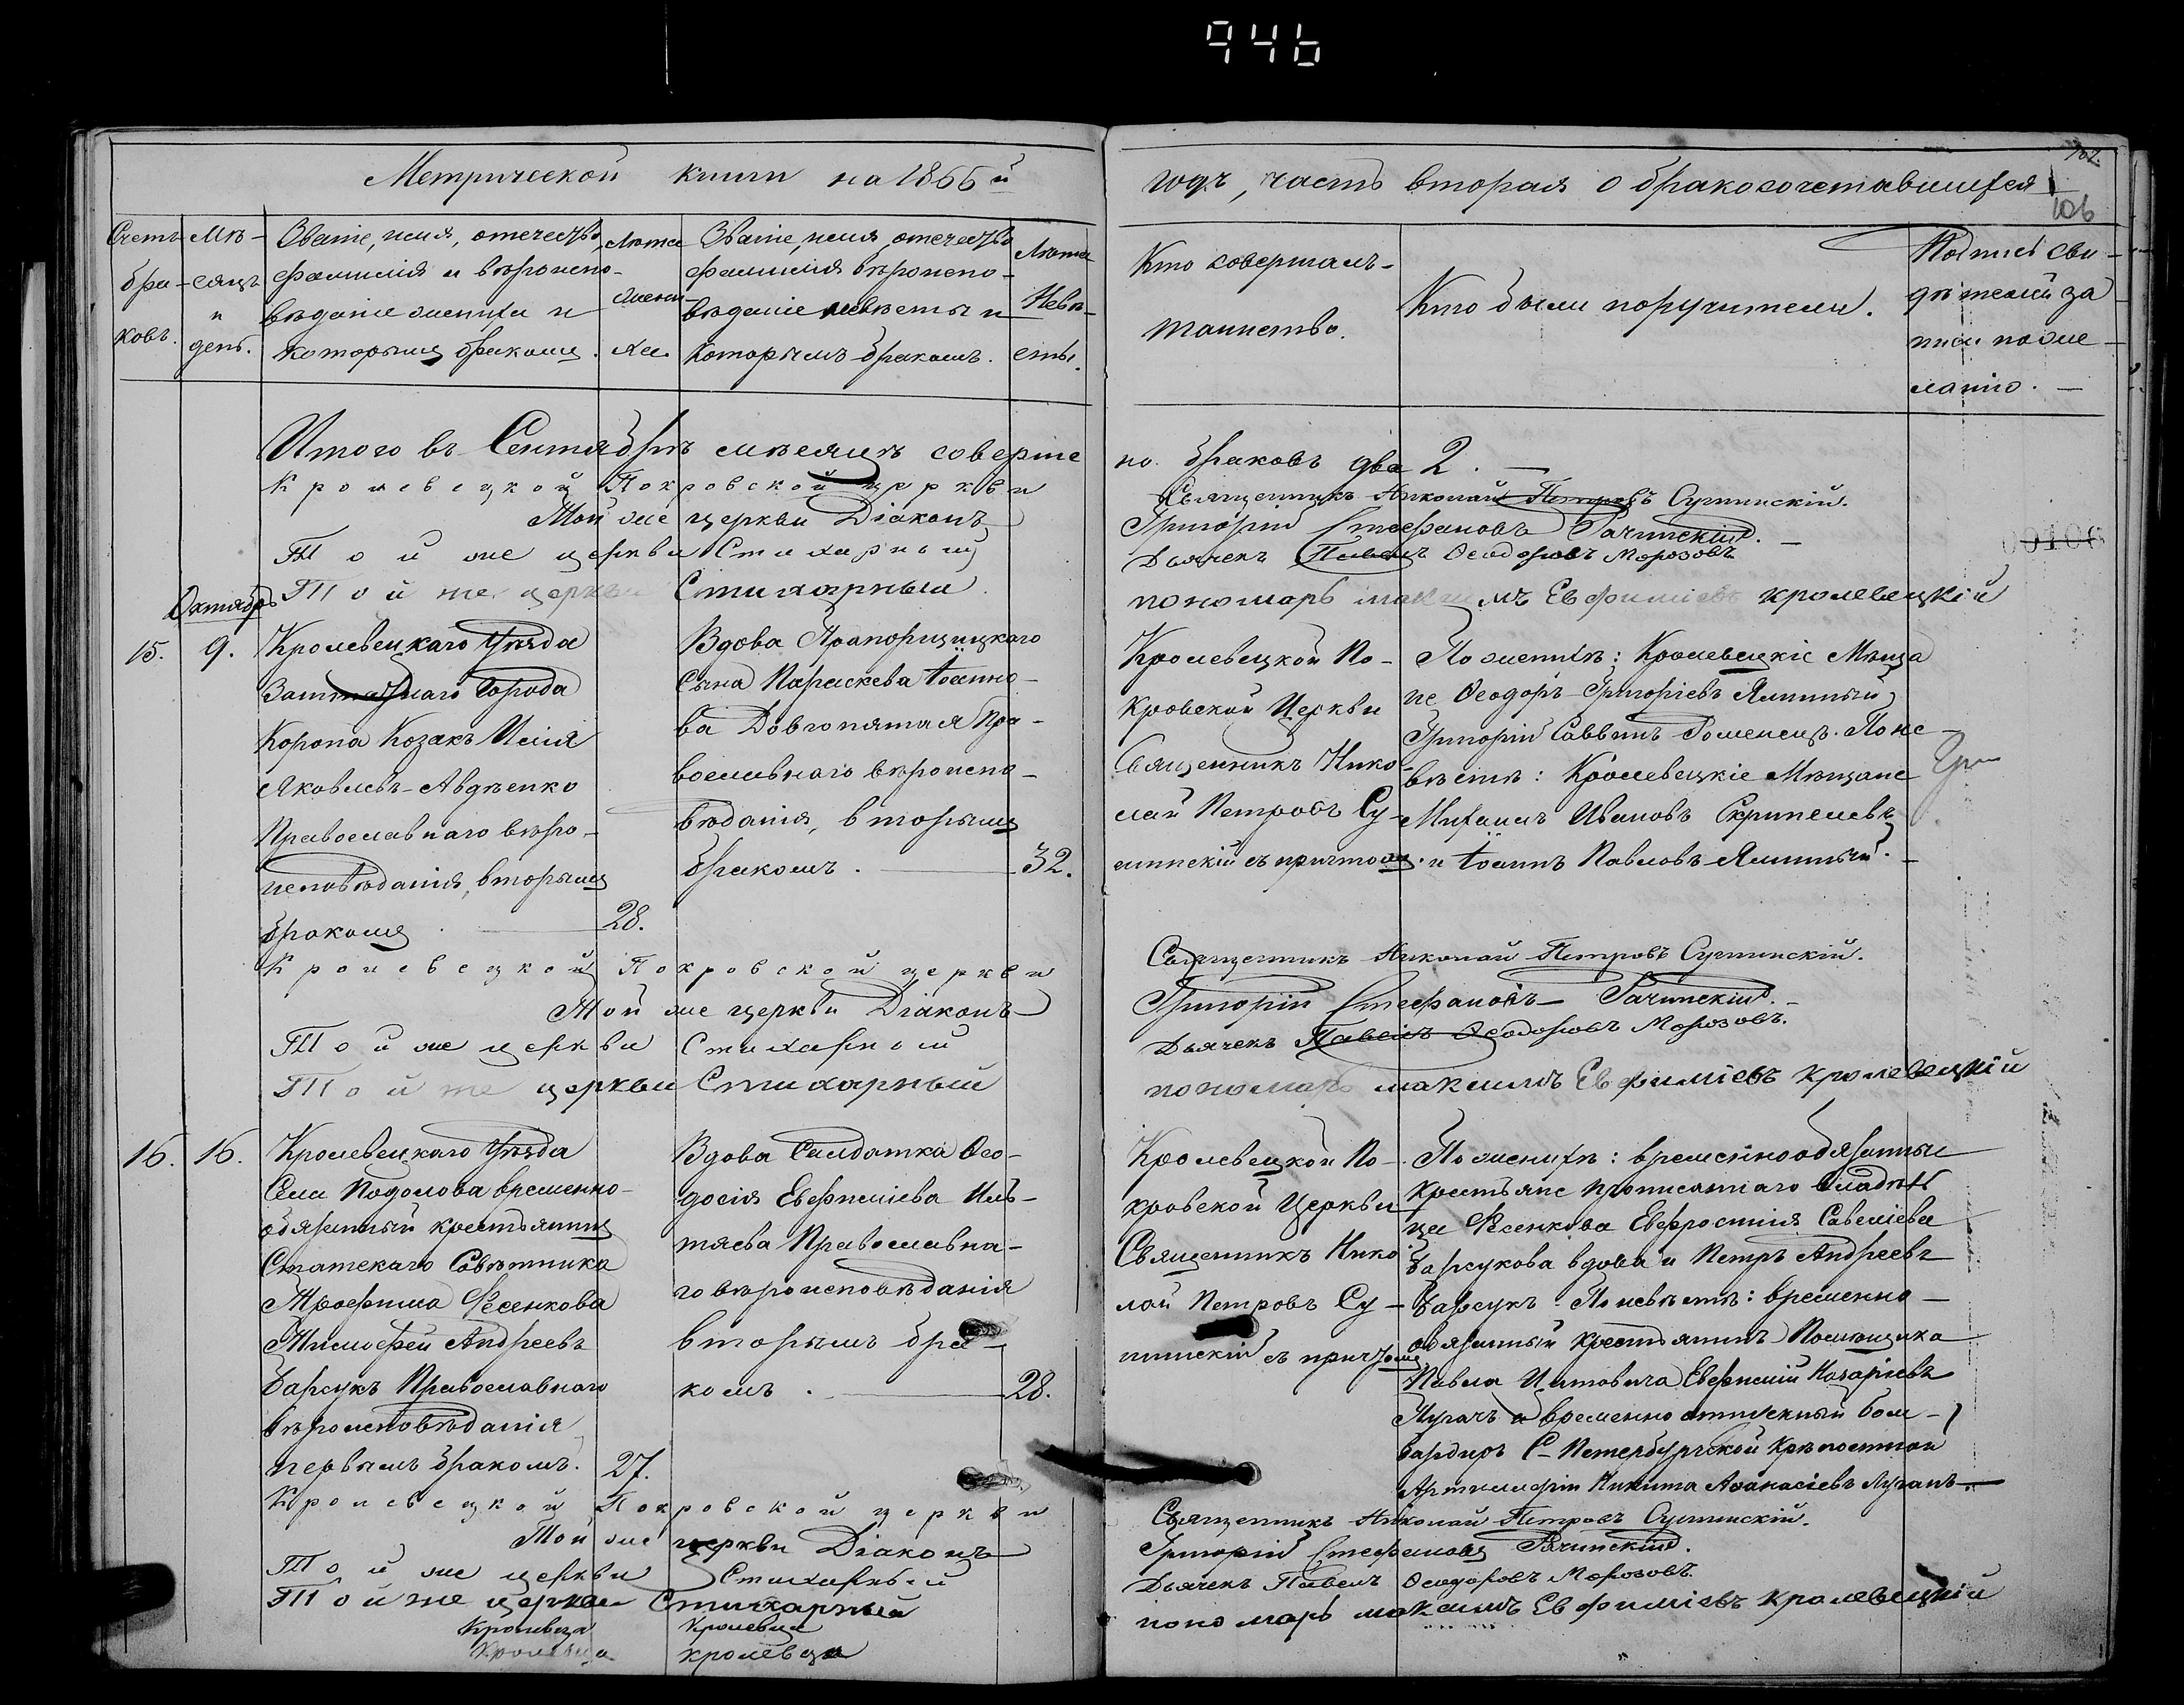 946
Метрической книги на 1866й
годъ, часть вторая о бракосочетавшихся
102.
106
Счетъ бра-ковъ.
Мѣ-сяцъ и день.
Званіе, имя, отечество,
фамилія и вѣроиспо-
вѣданіе жениха и
которымъ бракомъ.
Лѣта
жени-
ха.
Званіе, имя, отечество
фамилія вѣроиспо-
вѣданіе невѣсты и
которымъ бракомъ.
Лѣта
Невѣ-
сты.
Кто совершалъ
таинство.
Кто были поручители.
Подпись сви-
дѣтелей за
писи по же-
ланію. —
Итого въ Сентябрѣ мѣсяцѣ соверше
но браковъ два 2. —
Кролевецкой Покровской церкви
Священникъ Николай Петровъ Сулимскій.
Той же церкви Діаконъ
Григорій Стефановъ Рачинскій. —
Той же церкви Стихарный
Дьячекъ Павелъ Ѳеодоровъ Морозовъ
Той же церкви Стихарный
пономарь максимъ Евфиміевъ кролевецкій
00106
Октябрь
15.
9.
Кролевецкаго Уѣзда
Заштатнаго Города
Коропа Козакъ Илія
Яковлевъ Авдѣенко
Православнаго вѣро-
исповѣданія, вторымъ
бракомъ.
28.
Вдова Прапорщицкаго
Сына Параскева Іоанно-
ва Довгопятая Пра-
вославнаго вѣроиспо-
вѣданія, вторымъ
бракомъ.
32.
Кролевецкой По-
кровской Церкви
Священникъ Нико-
лай Петровъ Су-
лимскій съ причтомъ.
По женихѣ: Кролевецкіе Мѣща
не Ѳеодоръ Григоріевъ Ялинный
Григорій Саввинъ Роменецъ. По не-
вѣстѣ: Кролевецкіе Мѣщане
Михаилъ Ивановъ Скрипелевъ
и Іоаннъ Павловъ Ялинный. —
Кролевецкой Покровской церкви
Священникъ Николай Петровъ Сулимскій.
Той же церкви Діаконъ
Григорій Стефановъ Рачинскій. —
Той же церкви Стихарной
Дьячекъ Павелъ Ѳеодоровъ Морозовъ.
Той же церкви Стихарный
пономарь максимъ Евфиміевъ кролевецкій
16.
16.
Кролевецкаго Уѣзда
Села Подолова временно-
обязанный крестьянинъ
Статскаго Совѣтника
Трофима Фесенкова
Тимофей Андреевъ
Барсукъ Православнаго
вѣроисповѣданія
первымъ бракомъ.
27.
Вдова Солдатка Ѳео-
досія Евфиміева Иль-
тяева Православна-
го вѣроисповѣданія
вторымъ бра-
комъ.
28.
Кролевецкой По-
кровской Церкви
Священникъ Нико-
лай Петровъ Су-
лимскій съ причтомъ
По женихѣ: временнообязанные
крестьяне прописаннаго владѣль
ца Фесенкова Евфросинія Савеліева
Барсукова вдова и Петръ Андреевъ
Барсукъ. По невѣстѣ: временно-
обязанный крестьянинъ Помѣщика
Павла Евфимій Назаріевъ
и временно отпускный бом-
бардиръ С-Петербургской Крѣпостной
Артиллеріи Никита Аѳанасіевъ
Кролевецкой Покровской церкви
Священникъ Николай Петровъ Сулимскій.
Той же церкви Діаконъ
Григорій Стефановъ Рачинскій.
Той же церкви Стихарный
Дьячекъ Павелъ Ѳеодоровъ Морозовъ.
Той же церкви Стихарный
пономарь максимъ Евфиміевъ кролевецкій
Кролевца Кролевца
Кролевца кролевца